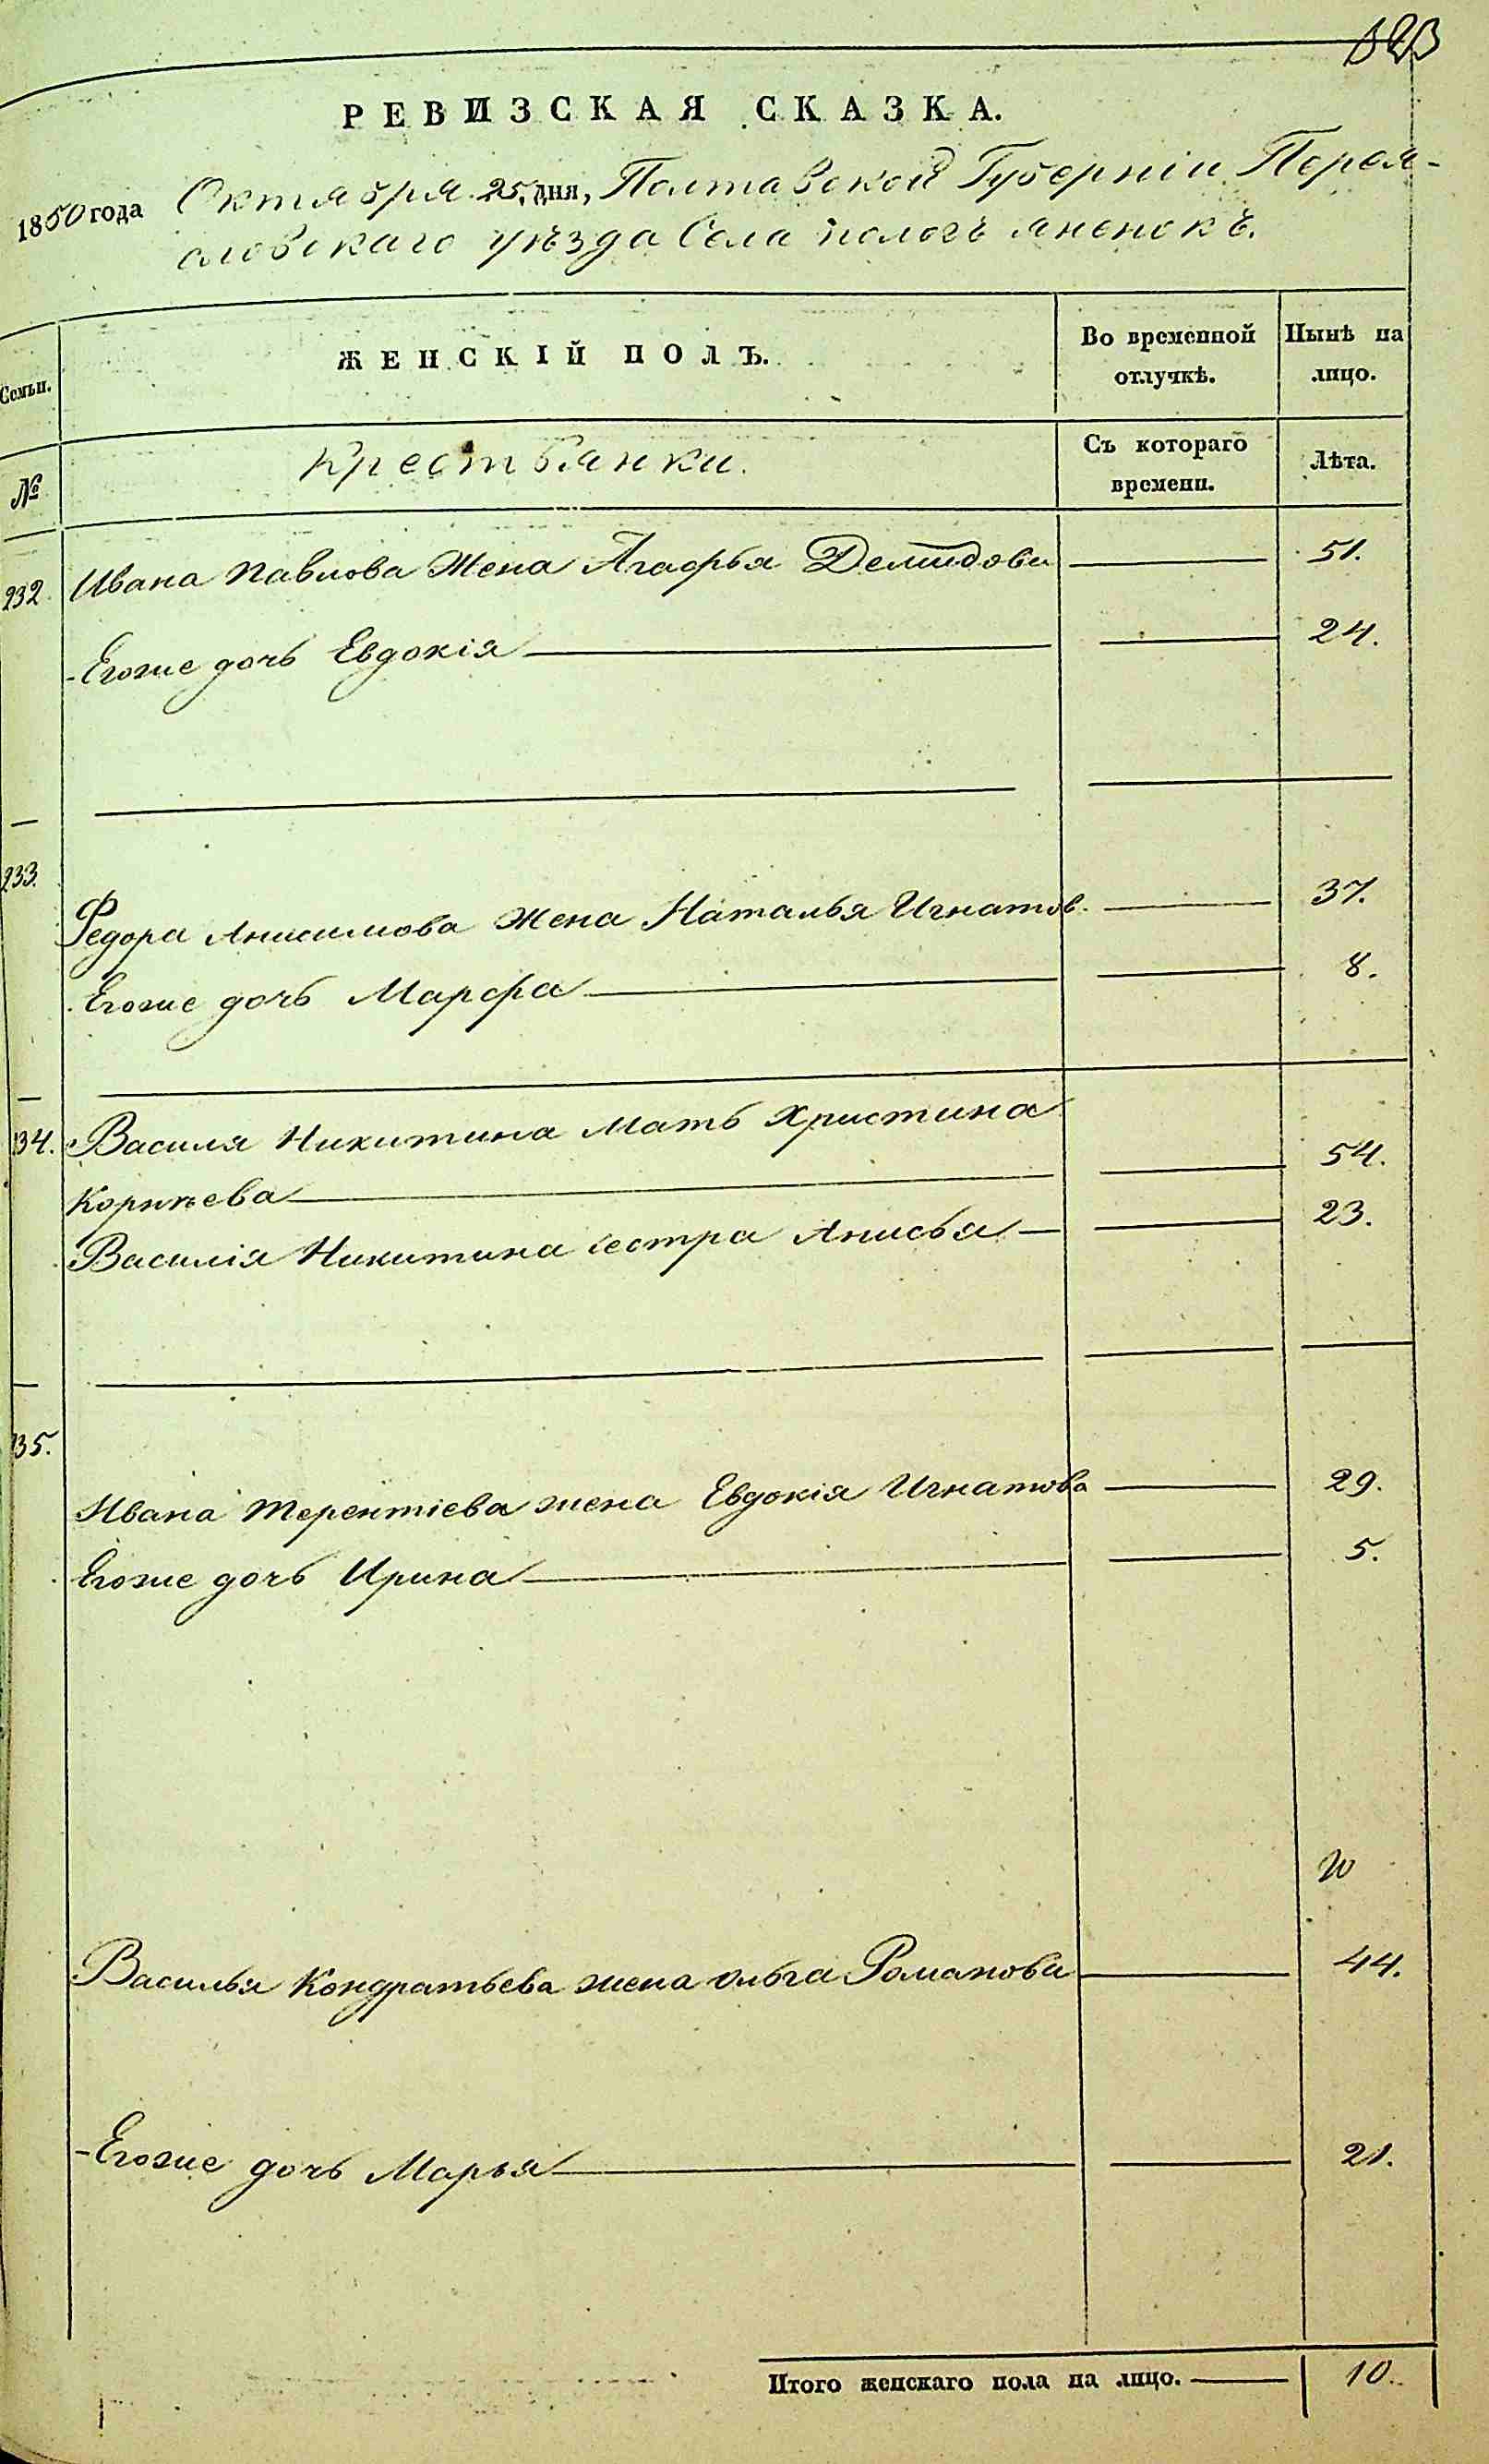 РЕВИЗСКАЯ СКАЗКА.
1850 года Октября 25 дня, Полтавской Губерніи Перея-
словскаго уѣзда Села пологъ яненокъ.
Семьи. ЖЕНСКІЙ ПОЛЪ. Во временной отлучкѣ. Нынѣ на лицо.
№ Крестьянки. Съ котораго времени. Лѣта.
232 Ивана Павлова Жена Агафья Демидова 51.
Егоже дочь Евдокія 24.
233. Федора Анисимова Жена Наталья Игнатов. 37.
Егоже дочь Марфа 8.
34. Василя Никитина Мать Христина
Корнѣева 54.
Василія Никитина сестра Анисья 23.
35. Ивана Терентіева жена Евдокія Игнатова 29.
Егоже дочь Ирина 5.
Василья Кондратьева жена Ольга Романова 44.
Егоже дочь Марья 21.
Итого женскаго пола на лицо. 10.